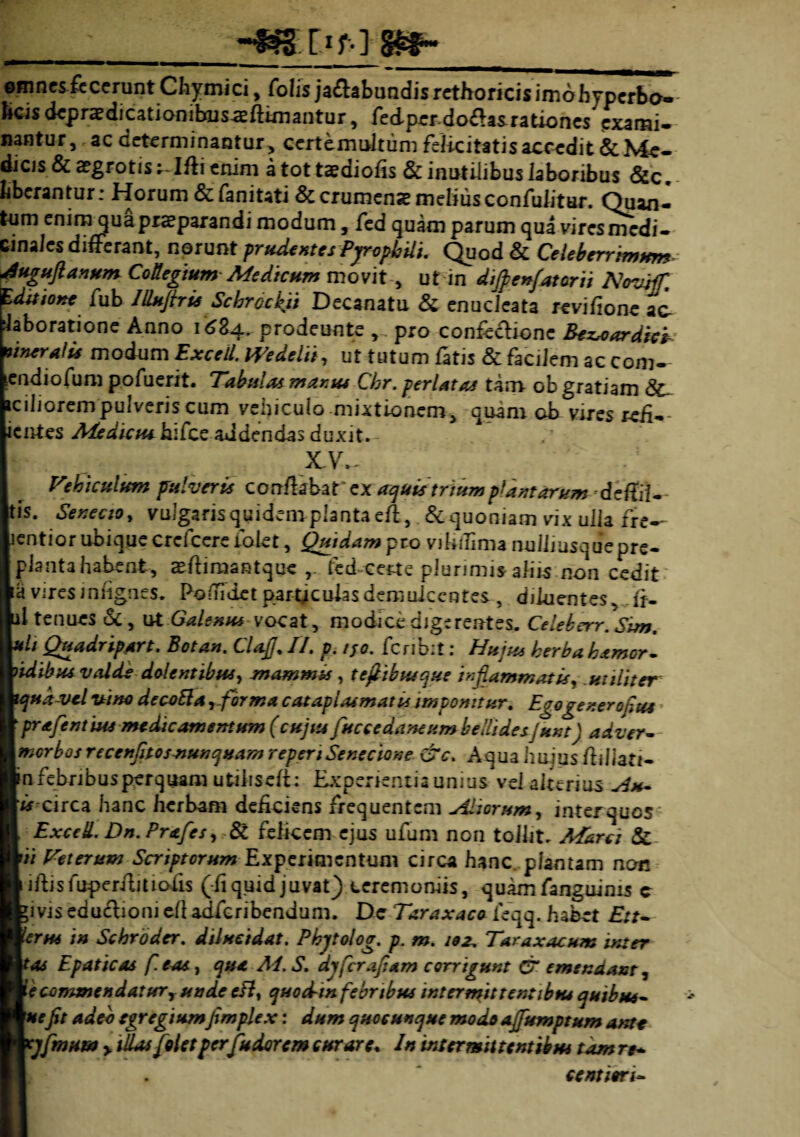 [15.]
omnes fecerunt Chymici, solis jactabundis rethoricis imò hyperbo-
licis deprædicationibus æstimantur, sed per doctas rationes exami-
nantur, ac determinantur, certè multùm felicitatis accedit & Me-
dicis & ægrotis: Isti enim à tot tædiosis & inutilibus laboribus &c.
liberantur: Horum & sanitati & crumenæ meliùs consulitur. Quan-
tum enim quâ præparandi modum, sed quàm parum quâ vires medi-
cinales differant, norunt prudentes Pyrophili. Quod & Celeberrimum
Augustanum Collegium Medicum movit, ut in dispensatorii Noviss.
Editione sub Illustris Schröckii Decanatu & enucleata revisione ac
laboratione Anno 1684. prodeunte, pro confectione Bezoardici
mineralis modum Excell. Wedelii, ut tutum satis & facilem ac com-
endiosum posuerit. Tabulas manus Chr. perlatas tàm ob gratiam &
aciliorem pulveris cum vehiculo mixtionem, quàm ob vires refi-
icientes Medicus hisce addendas duxit.
XV.
Vehiculum pulveris constabat ex aquis trium plantarum destil-
tis. Senecio, vulgaris quidem planta est, & quoniam vix ulla fre-
uentior ubique crescere solet, Quidam pro vilissima nulliusque pre-
planta habent, æstimantque, sed certe plurimis aliis non cedit
uà vires insignes. Possidet particulas demulcentes, diluentes, si-
ul tenues &, ut Galenus vocat, modicè digerentes. Celeberr. Sim.
uli Quadripart. Botan. Class. II. p. 150. scribit: Hujus herba hæmor-
oidibus valdè dolentibus, mammis, testibusque inflammatis, utiliter
aquâ vel vino decocta, forma cataplasmatis imponitur. Ego generosius
præsentius medicamentum (cujus succedaneum bellides sunt) adver-
morbos recensitos nunquam reperi Senecione &c. Aqua hujus stillati-
in febribus perquam utilis est: Experientia unius vel alterius Au-
is circa hanc herbam deficiens frequentem Aliorum, inter quos
Excell. Dn. Præses, & felicem ejus usum non tollit. Marci &
ii Veterum Scriptorum Experimentum circa hanc plantam non
istis superstitiosis (si quid juvat) ceremoniis, quàm sanguinis e
givis eductioni est adscribendum. De Taraxaco seqq. habet Ett-
lerus in Schröder. dilucidat. Phytolog. p. m. 102. Taraxacum inter
tas Epaticas s. eas, quæ M. S. dyscrasiam corrigunt & emendant,
e commendatur, unde est, quod in febribus intermittentibus quibus-
ue sit adeò egregium simplex: dum quocunque modo assumptum ante
xysmum, illas solet per sudorem curare. In intermittentibus tàm re-
centiori-